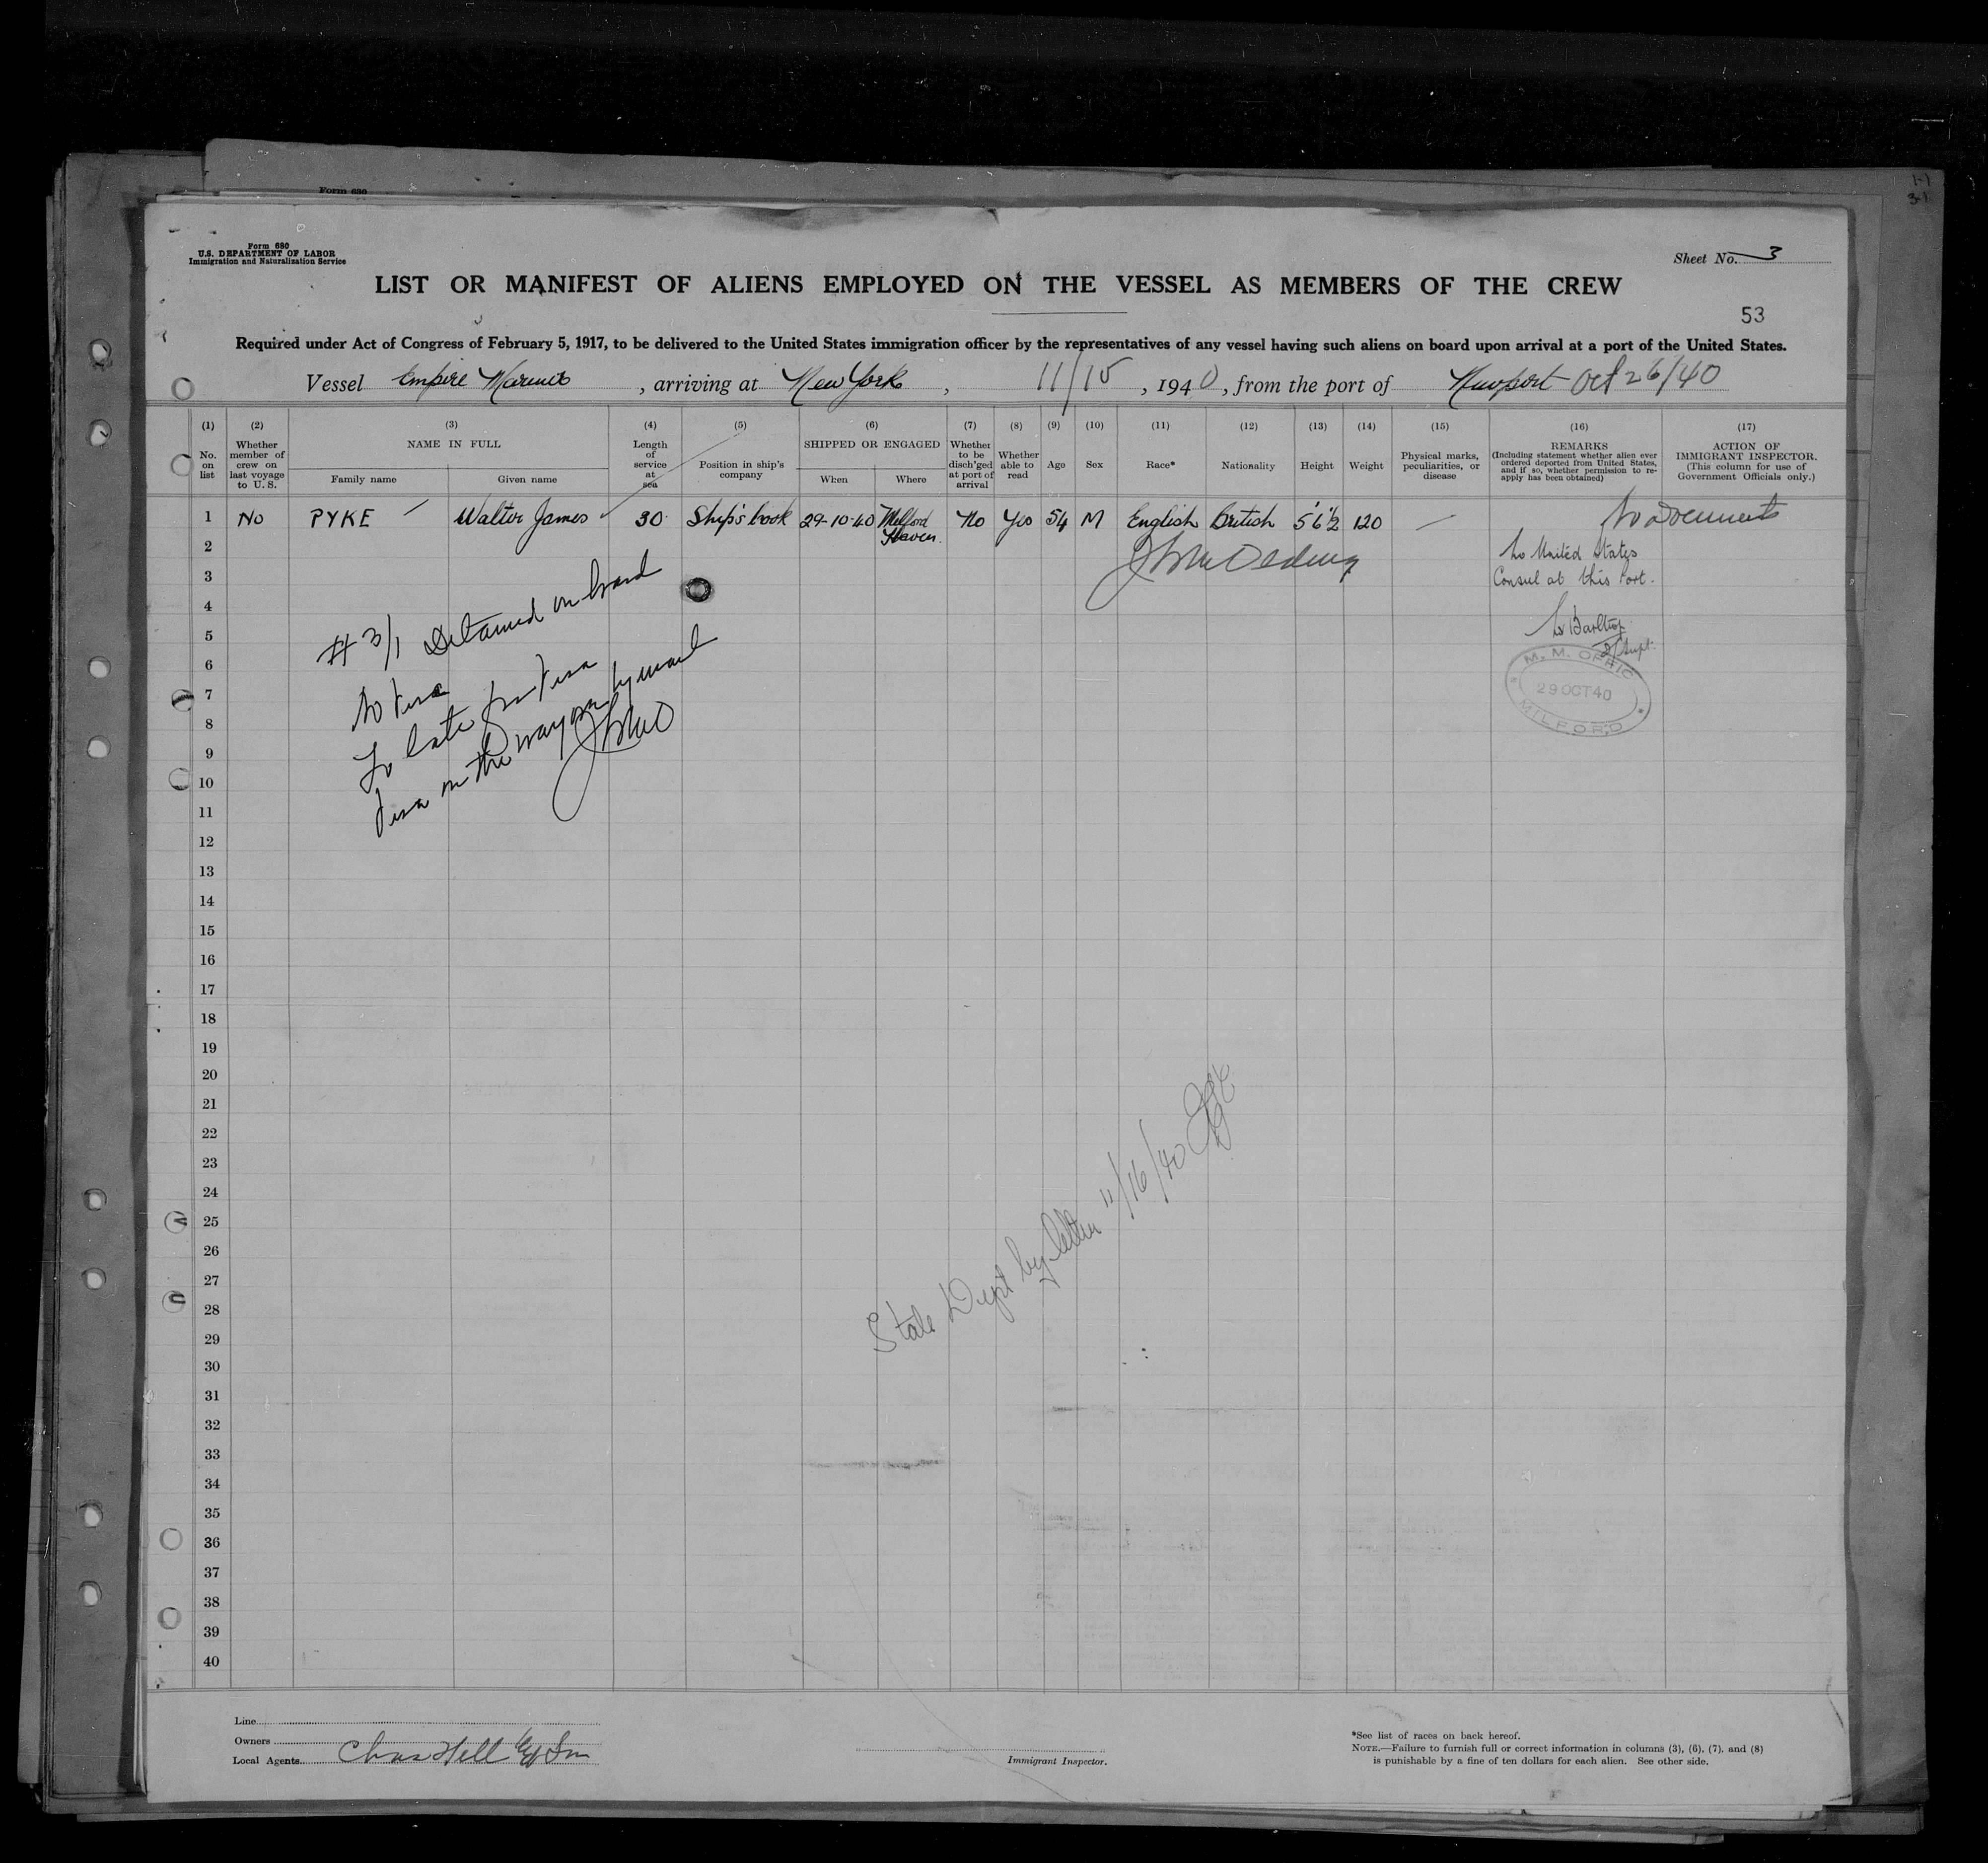 Form 630
1-1
3-1
Form 680
U.S. DEPARTMENT OF LABOR
Immigration and Naturalization Service
Sheet No. 3
LIST OR MANIFEST OF ALIENS EMPLOYED ON THE VESSEL AS MEMBERS OF THE CREW
53
Required under Act of Congress of February 5, 1917, to be delivered to the United States immigration officer by the representatives of any vessel having such aliens on board upon arrival at a port of the United States.
Vessel Empire Mariner, arriving at New York, 11/15, 1940, from the port of Newport Oct 26/40
(1) No. on list
(2) Whether member of crew on last voyage to U. S.
(3) NAME IN FULL
Family name
Given name
(4) Length of service at sea
(5) Position in ship's company
(6) SHIPPED OR ENGAGED
When
Where
(7) Whether to be disch'ged at port of arrival
(8) Whether able to read
(9) Age
(10) Sex
(11) Race*
(12) Nationality
(13) Height
(14) Weight
(15) Physical marks, peculiarities, or disease
(16) REMARKS (Including statement whether alien ever ordered deported from United States, and if so, whether permission to re-apply has been obtained)
(17) ACTION OF IMMIGRANT INSPECTOR. (This column for use of Government Officials only.)
1 No PYKE Walter James 30 Ship's cook 29-10-40 Milford Haven No Yes 54 M English British 5'6½ 120 — No Documents
2
No United States
3
Consul at this Port.
4
# 3/1 Detained on board
5
6
No Visa
To late for Visa
Visa on the way by mail
M. M. OFFIC
29 OCT 40
MILFORD
7
8
9
10
11
12
13
14
15
16
17
18
19
20
21
22
23
24
25
26
27
28
29
30
31
32
33
34
35
36
37
38
39
40
State Dept by letter 11/16/40
Line
Owners
Local Agents Chas Hill & Son
Immigrant Inspector.
*See list of races on back hereof.
NOTE.—Failure to furnish full or correct information in columns (3), (6), (7), and (8)
is punishable by a fine of ten dollars for each alien. See other side.